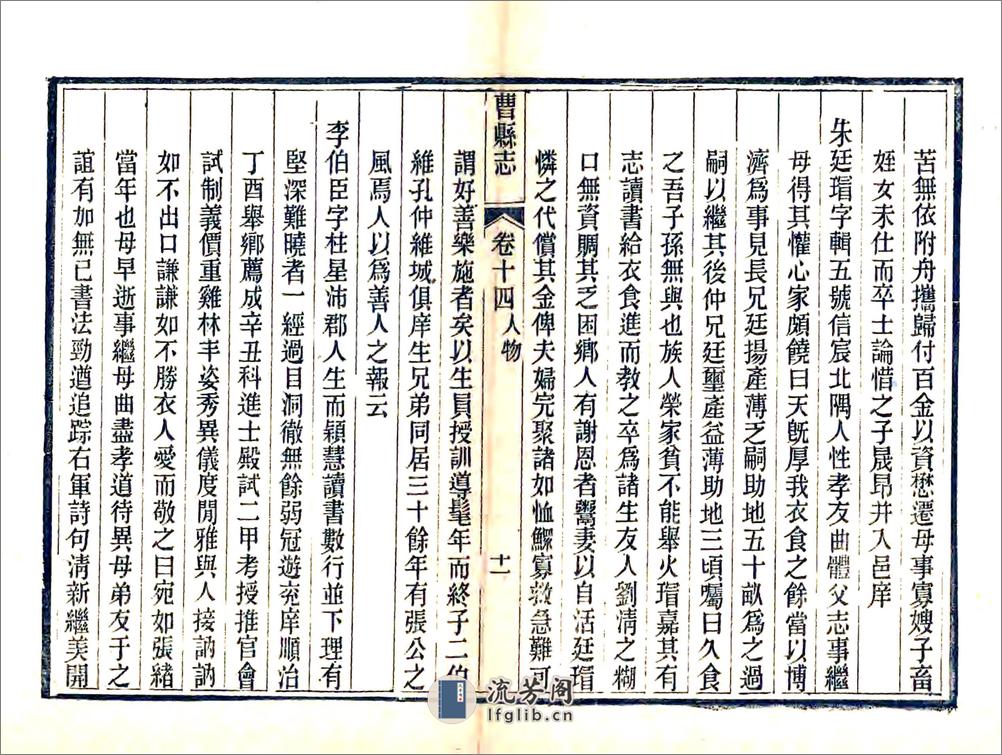 苦無依附舟攜歸付百金以資懋遷毋事寡嫂子畜
姪女未仕而卒士論惜之子晟昂并入邑庠
朱廷瑁字輯五號信宸北隅人性孝友曲體父志事繼
母得其懽心家頗饒曰天旣厚我衣食之餘當以博
濟爲事見長兄廷揚產薄乏嗣助地五十畝爲之過
嗣以繼其後仲兄廷璽產益薄助地三頃囑曰久食
之吾子孫無與也族人榮家貧不能舉火瑁嘉其有
志讀書給衣食進而教之卒爲諸生友人劉淸之糊
口無資賙其乏困鄉人有謝恩者鬻妻以自活廷瑁
憐之代償其金俾夫婦完聚諸如恤鰥寡救急難可
曹縣志
卷十四 人物
十一
謂好善樂施者矣以生員授訓導髦年而終子二伯
維孔仲維城俱庠生兄弟同居三十餘年有張公之
風焉人以爲善人之報云
李伯臣字柱星沛郡人生而穎慧讀書數行並下理有
堅深難曉者一經過目洞徹無餘弱冠遊兖庠順治
丁酉舉鄉薦成辛丑科進士殿試二甲考授推官會
試制義價重雞林丰姿秀異儀度閒雅與人接訥訥
如不出口謙謙如不勝衣人愛而敬之曰宛如張緒
當年也母早逝事繼母曲盡孝道待異母弟友于之
誼有加無已書法勁遒追踪右軍詩句淸新繼美開
流芳閣
lfglib.cn